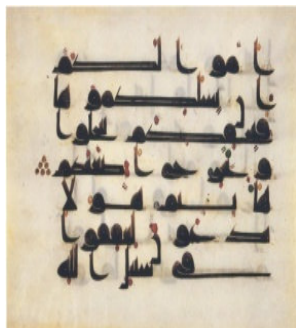 اموالكم
ان يسلكموها
فيحفكم تبخلوا
و يخرج اضغنكم
هانتم هولا
تدعون لتنفقوا
في سبيل الله